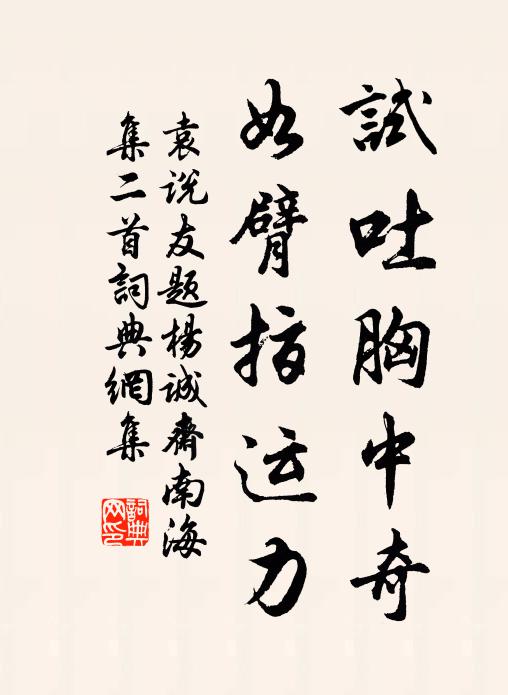 試吐胸中奇
如臂指运力
袁说友题楊诚齋南海
集二首詞典網集
詞典
网印